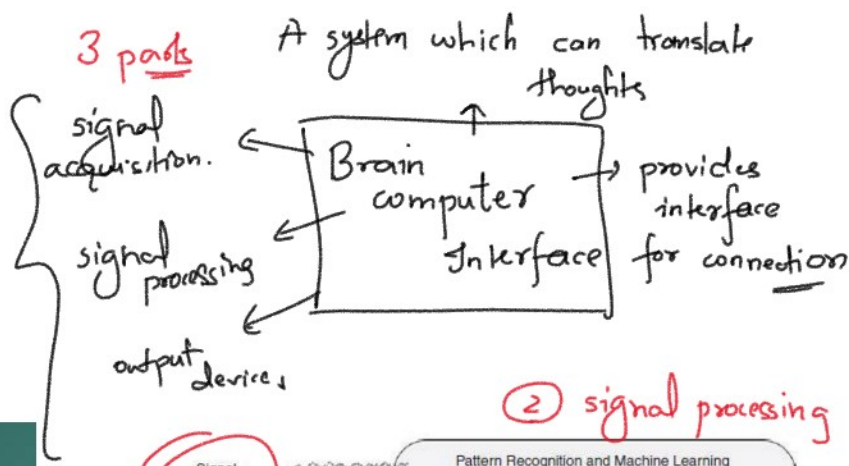 3 parts
A system which can translate
thoughts
signal
acquisition.
signal
processing
output
devices
Brain
computer
Interface
provides
interface
for connection
2 signal processing
Signal
Pattern Recognition and Machine Learning